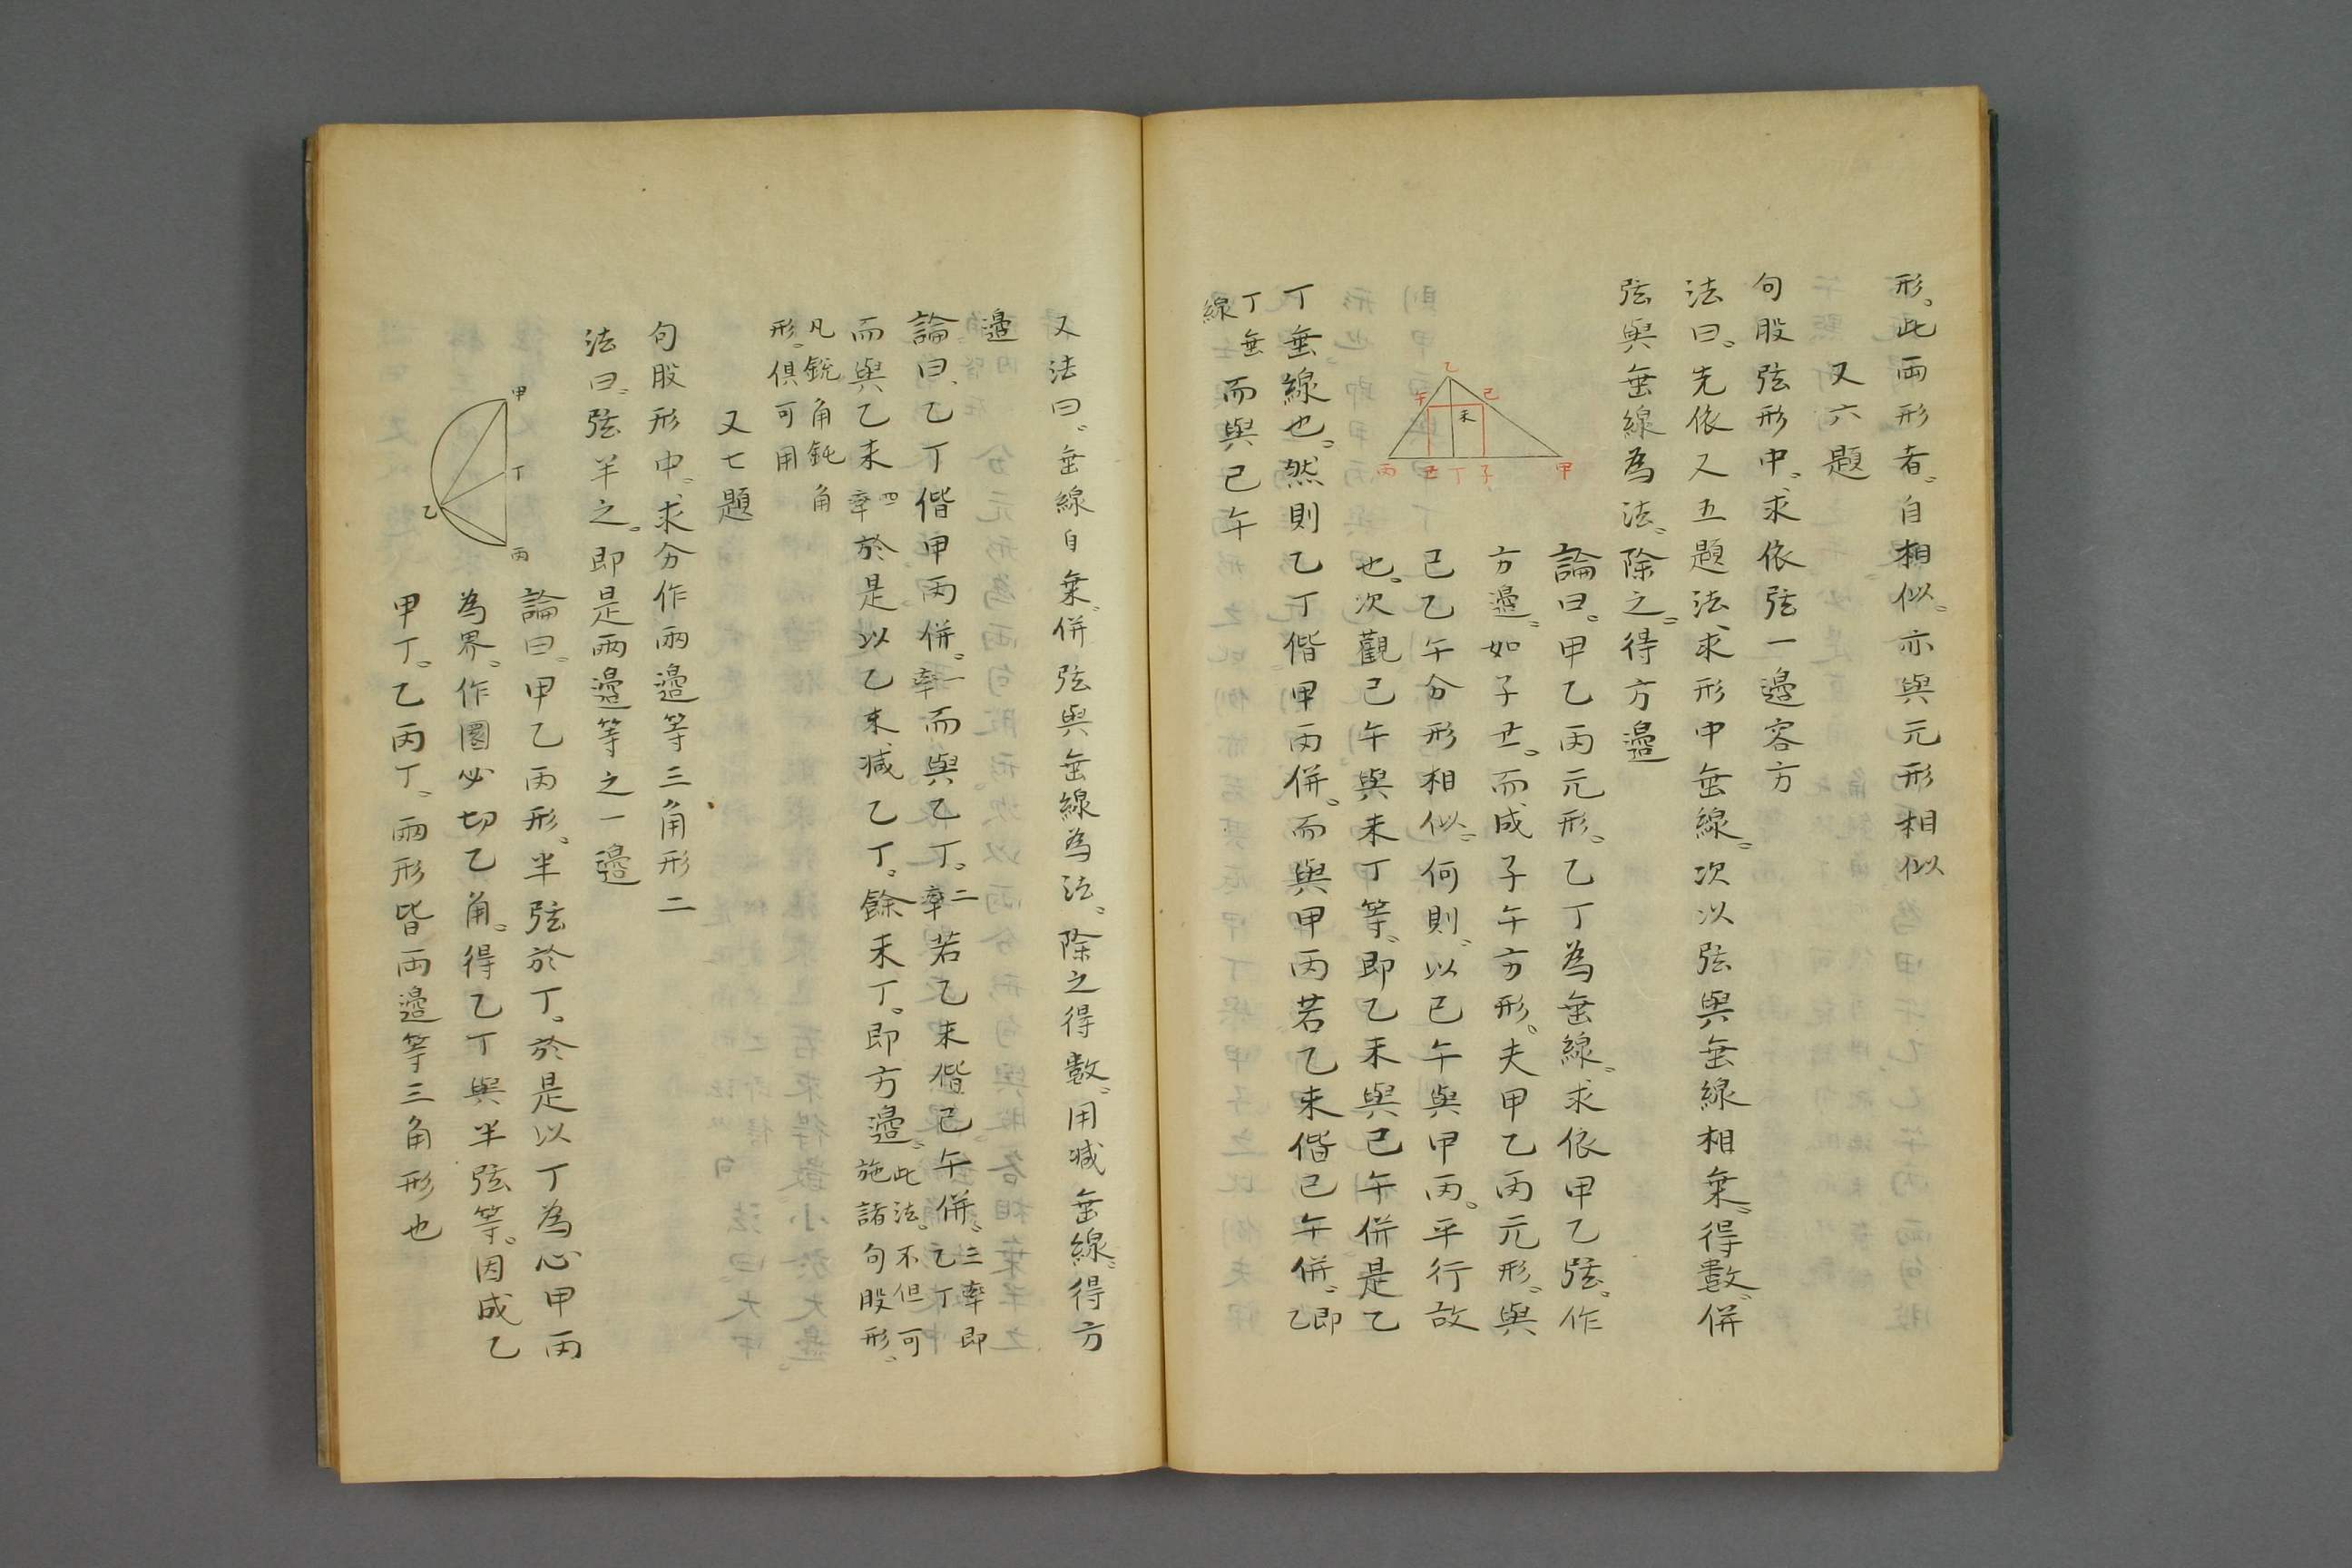 形、此両形者、自相似、亦與元形相似
又六題
句股弦形中、求依弦一邊容方
法曰、先依又五題法、求形中垂線、次以弦與垂線相乗、得數、併
弦與垂線為法、除之、得方邊
乙
午 己
未
丙 丑 丁 子 甲
論曰、甲乙丙元形、乙丁為垂線、求依甲乙弦、作
方邊、如子丑、而成子午方形、夫甲乙丙元形、與
己乙午分形相似、何則、以己午與甲丙、平行故
也、次觀己午與未丁等、即乙未與己午併是乙
丁垂線也、然則乙丁偕甲丙併、而與甲丙若乙未偕己午併、即乙
丁垂線而與己午
又法曰、垂線自乗、併弦與垂線為法、除之得數、用减垂線、得方
邊
論曰、乙丁偕甲丙併、一率而與乙丁、二率若乙未偕己午併、三率即乙丁
而與乙未四率於是以乙未减乙丁、餘未丁、即方邊、此法、不但可施諸句股形、
凡銳角鈍角形、俱可用
又七題
句股形中、求分作兩邊等三角形二
法曰、弦半之、即是兩邊等之一邊
甲
丁
乙
丙
論曰、甲乙丙形、半弦於丁、於是以丁為心甲丙
為界、作圜必切乙角、得乙丁與半弦等、因成乙
甲丁、乙丙丁、兩形皆両邊等三角形也